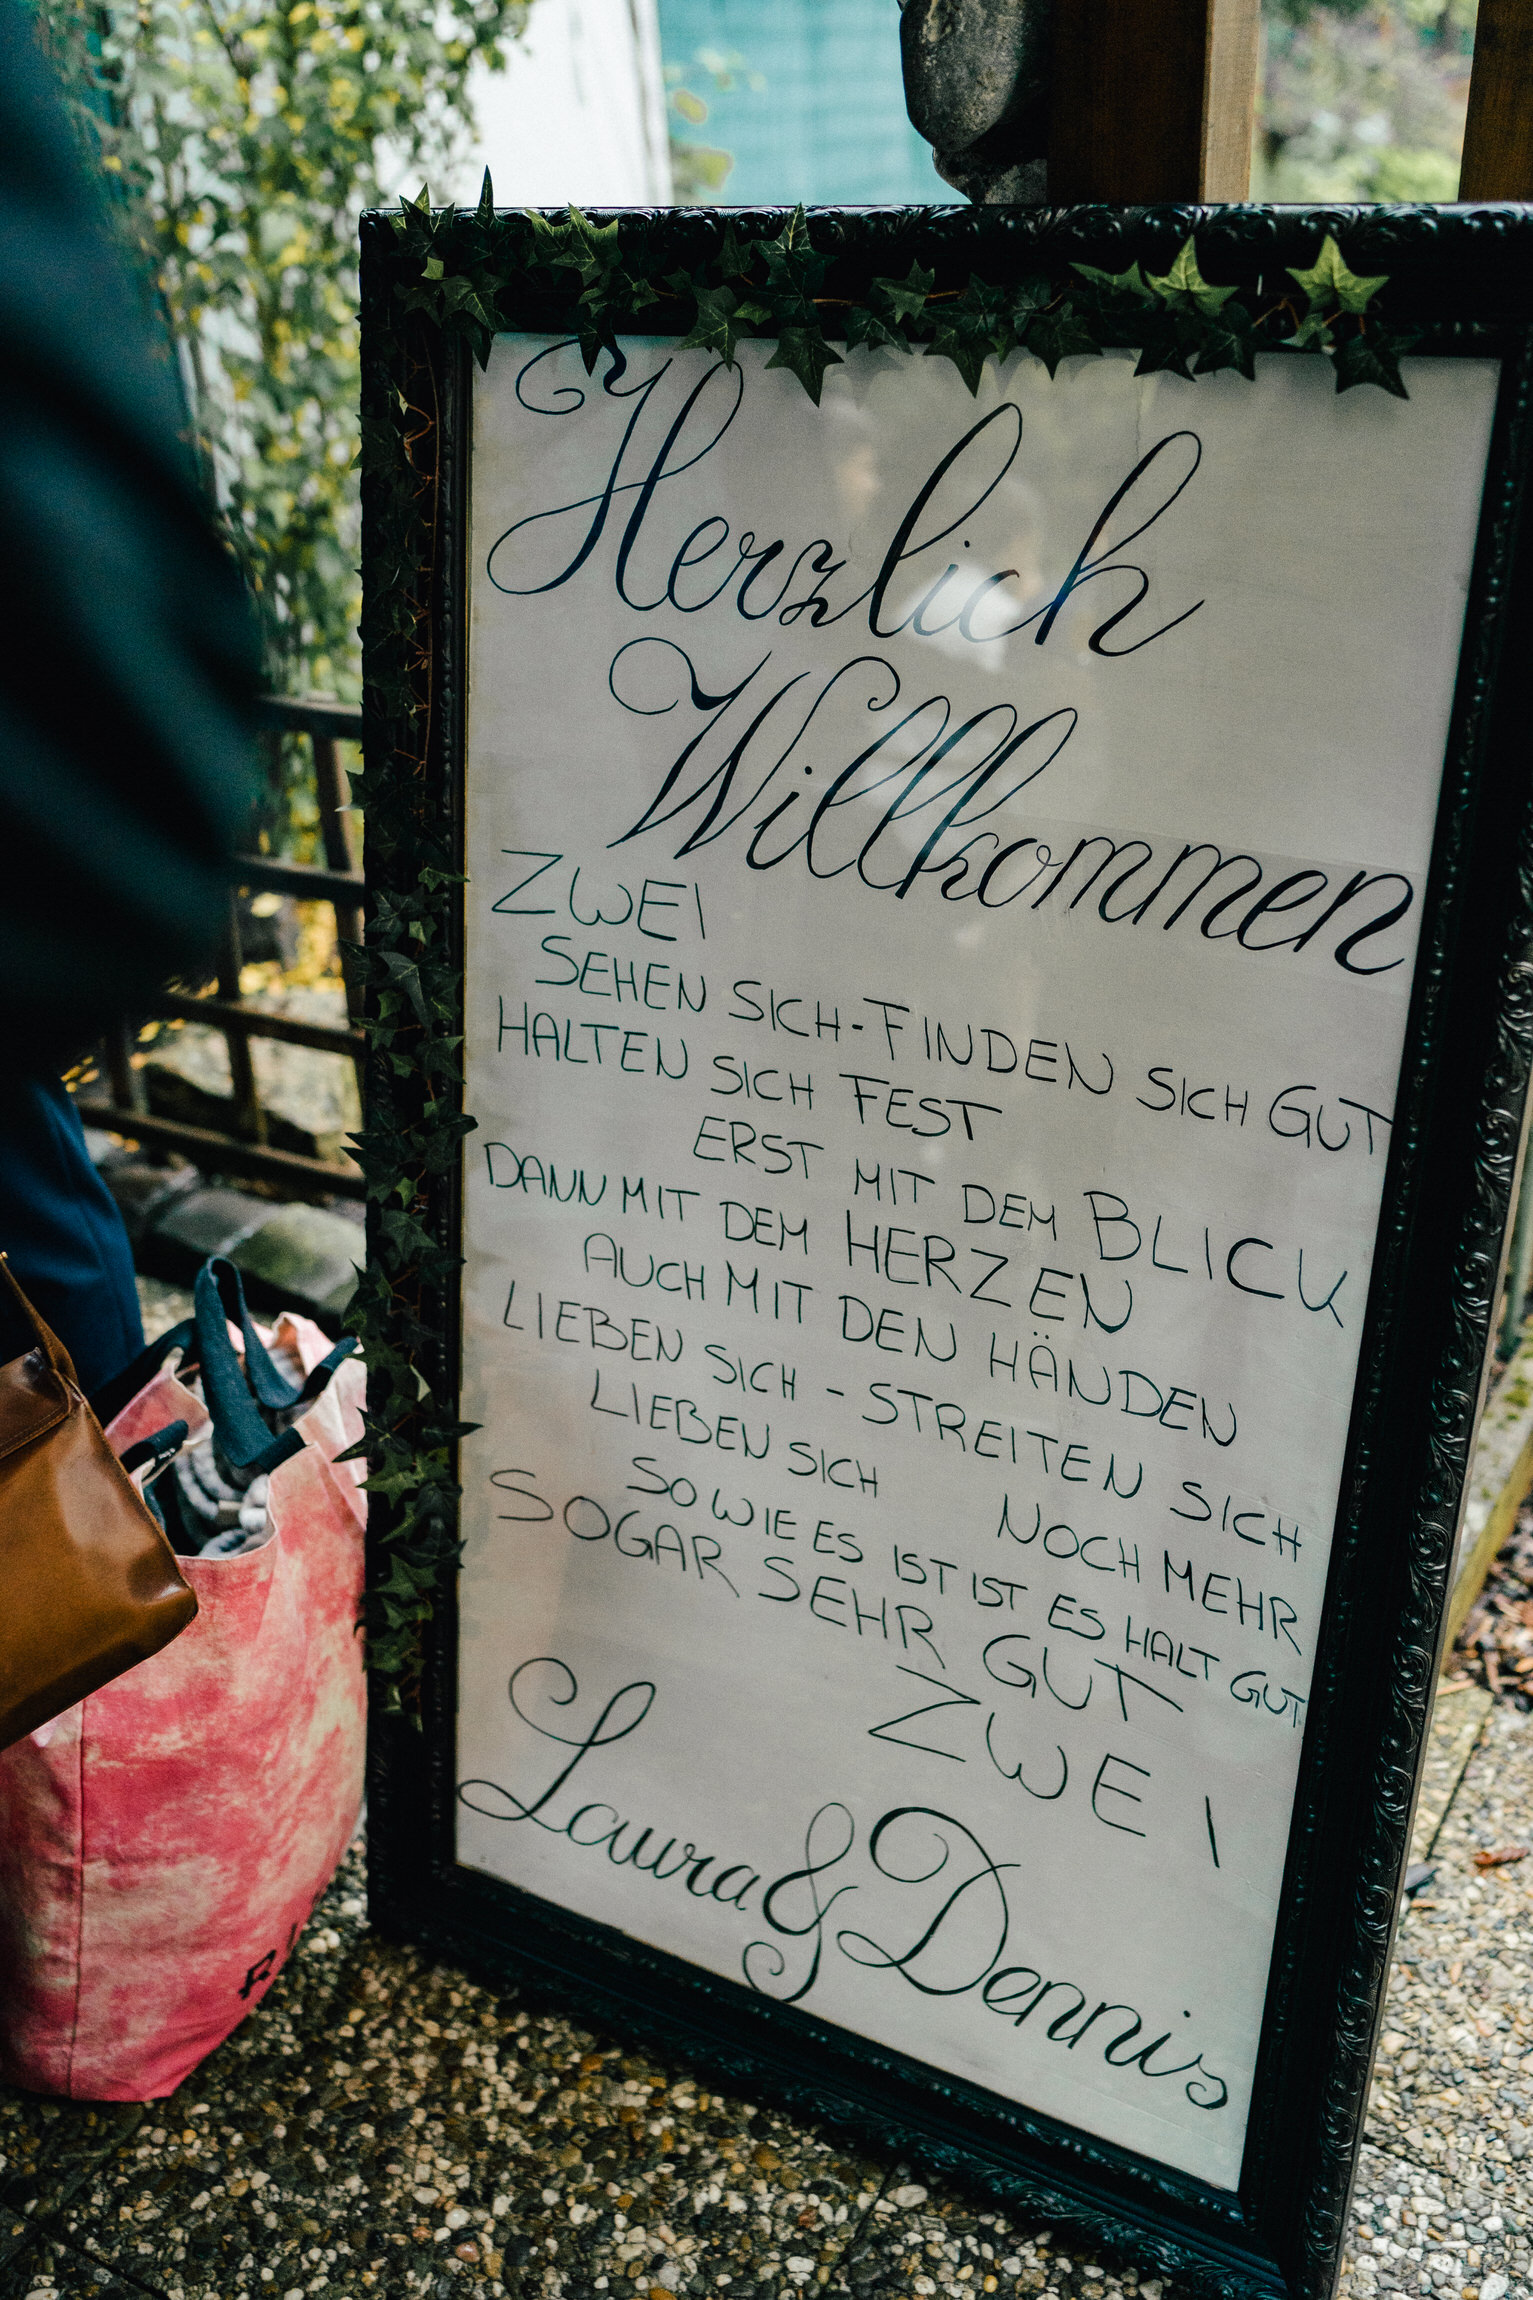 Herzlich
Willkommen
ZWEI
SEHEN SICH - FINDEN SICH GUT
HALTEN SICH FEST
ERST MIT DEM BLICK
DANN MIT DEM HERZEN
AUCH MIT DEN HÄNDEN
LIEBEN SICH - STREITEN SICH
LIEBEN SICH NOCH MEHR
SO WIE ES IST IST ES HALT GUT
SOGAR SEHR GUT
ZWEI
Laura & Dennis